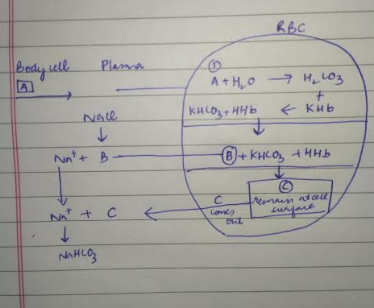 RBC
Body cell Plasma
A
①
A + H₂O → H₂CO₃
+
KHCO₃ + HHb ← KHb
NaCl
Na⁺ + B
Ⓑ + KHCO₃ + HHb
Ⓒ
Remain at cell
surface
Na⁺ + C
C
comes
out
NaHCO₃